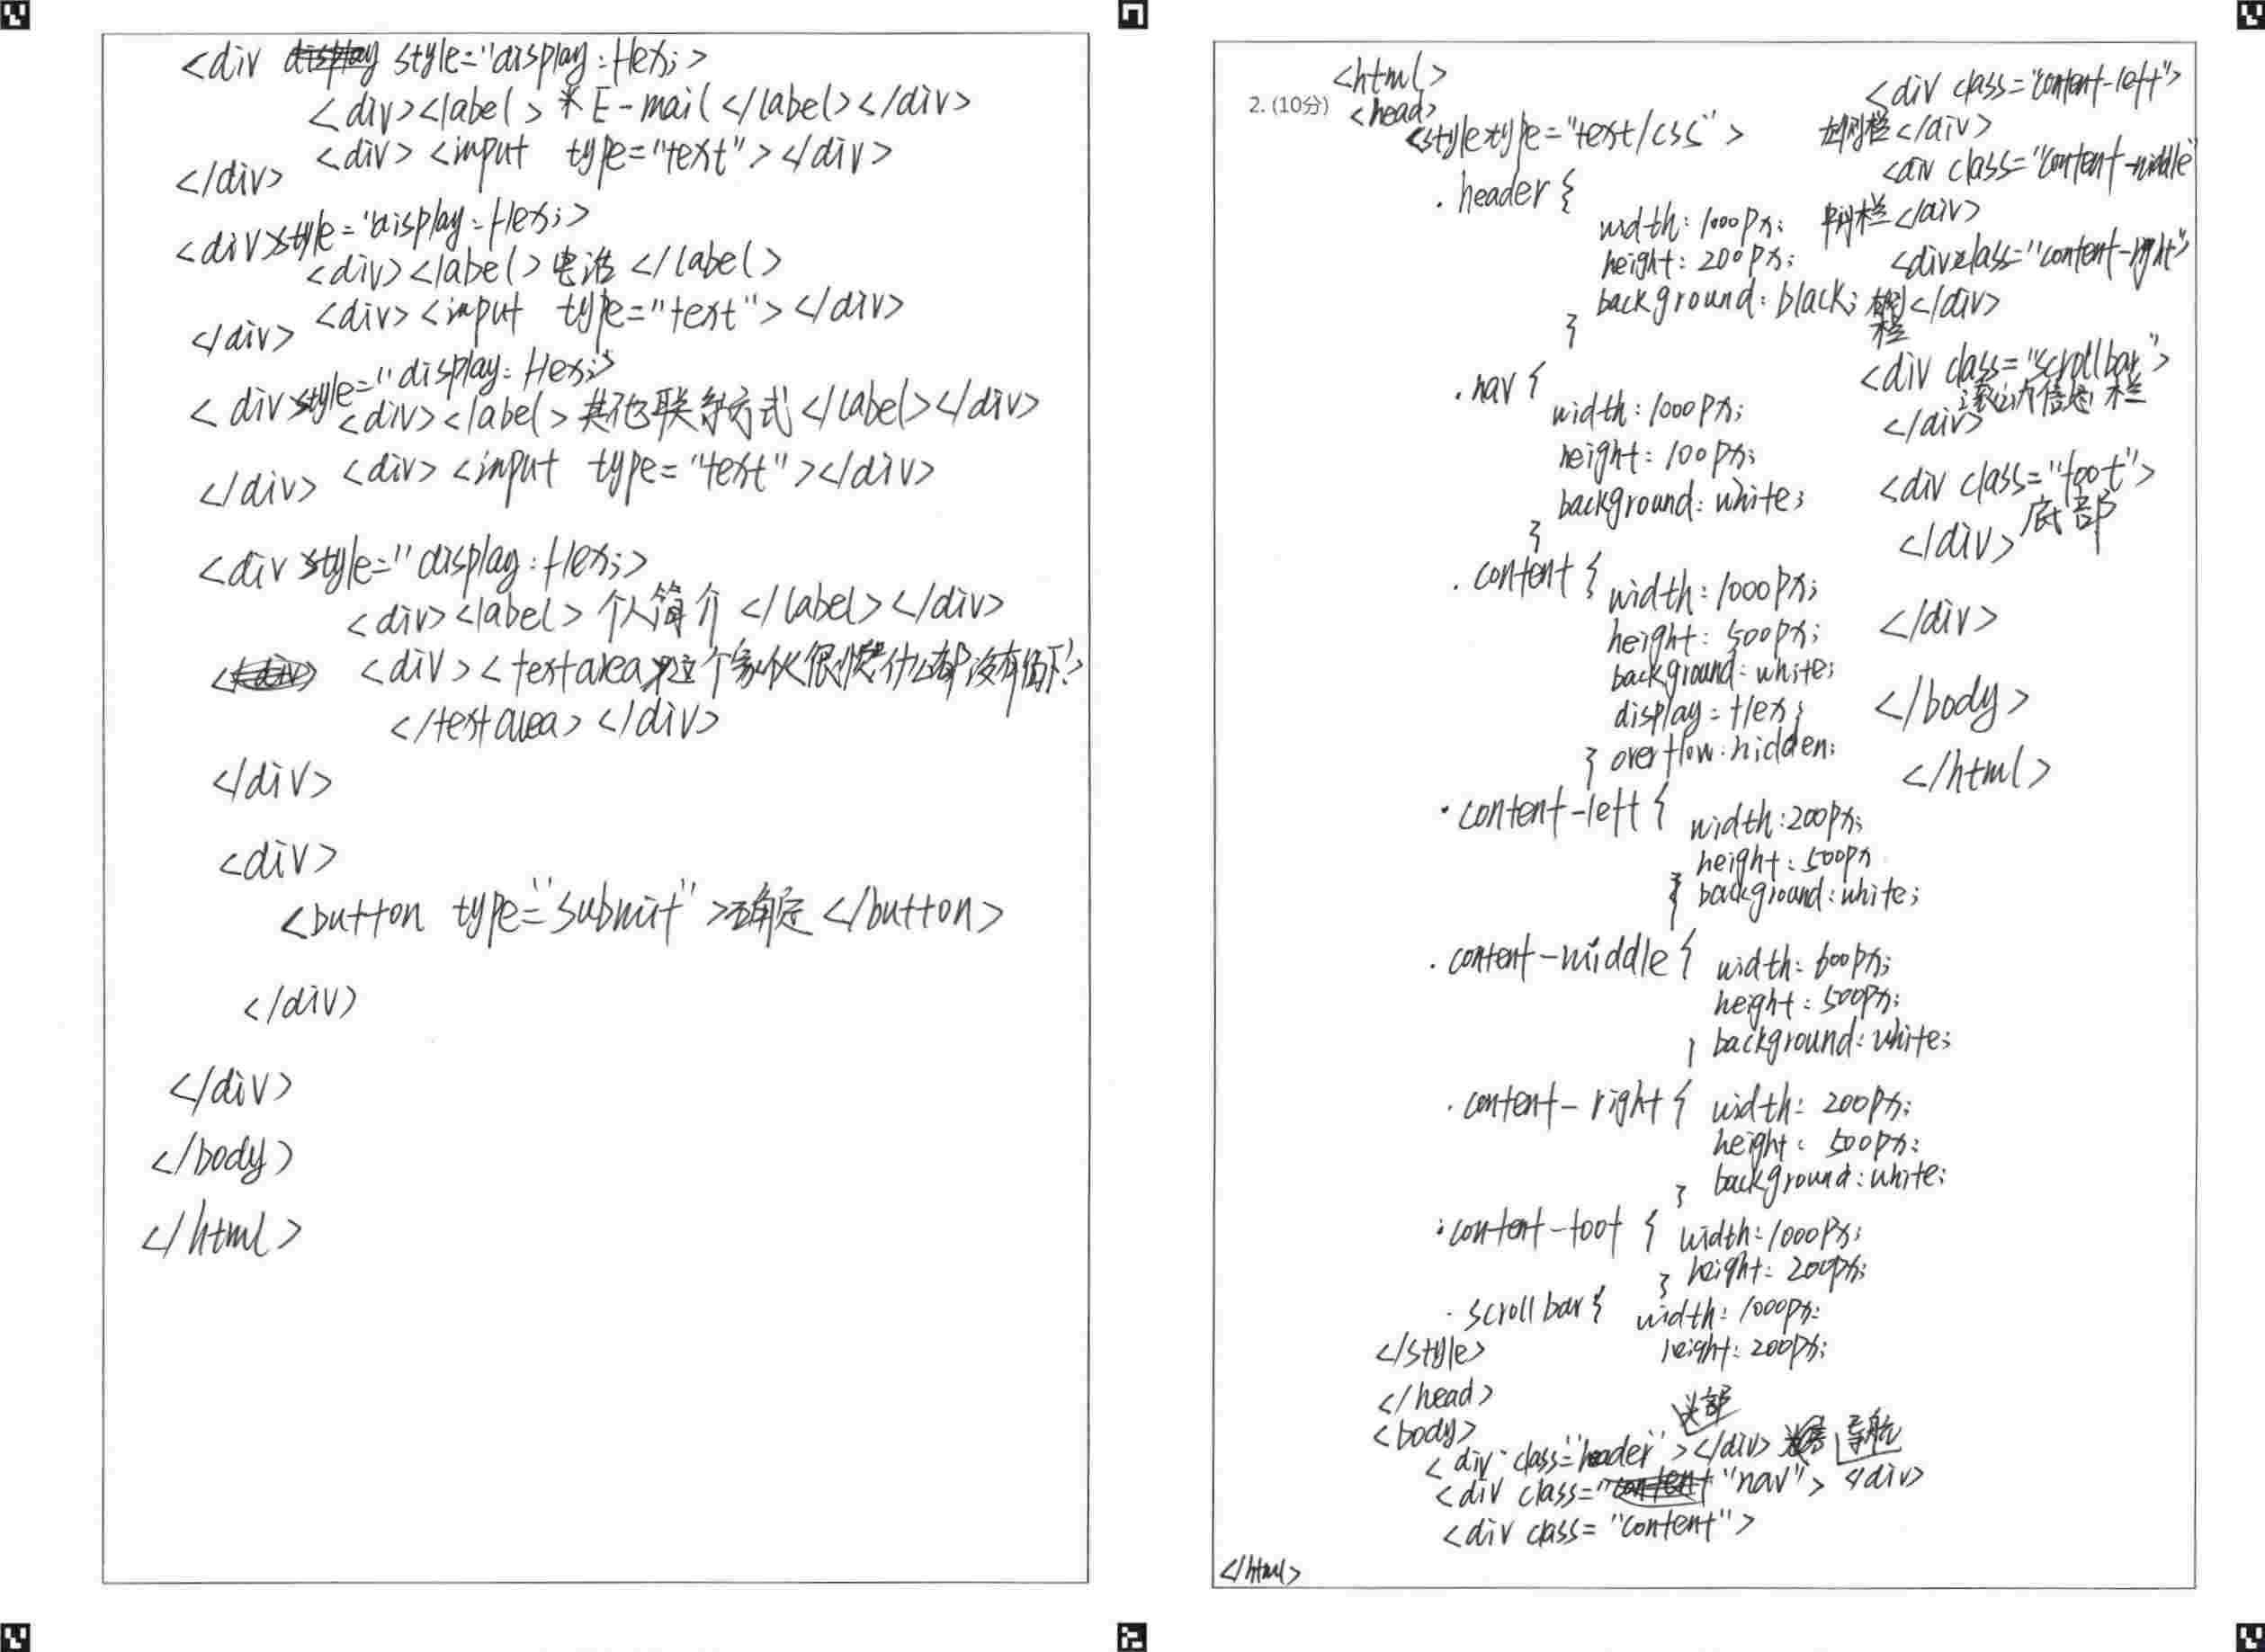 <div style="display:flex;>
<div><label>*E-mail</label></div>
<div><input type="text"></div>
</div>
<div style="display:flex;>
<div><label>电话</label>
<div><input type="text"></div>
</div>
<div style="display:flex;>
<div><label>其他联系方式</label></div>
<div><input type="text"></div>
</div>
<div style="display:flex;>
<div><label>个人简介</label></div>
<div><textarea>这个家伙很懒什么都没有留下!
</textarea></div>
</div>
<div>
<button type="submit">确定</button>
</div>
</div>
</body>
</html>
2. (10分)
<html>
<head>
<style type="text/css">
.header {
width: 1000px;
height: 200px;
background: black;
}
.nav {
width: 1000px;
height: 100px;
background: white;
}
.content {
width: 1000px;
height: 500px;
background: white;
display: flex;
} overflow: hidden;
.content-left {
width: 200px;
height: 500px
} background: white;
.content-middle { width: 600px;
height: 500px;
} background: white;
.content-right { width: 200px;
height: 500px;
} background: white;
.content-foot { width: 1000px;
} height: 200px;
.scrollbar { width: 1000px;
height: 200px;
</style>
</head>
<body>
头部
<div class="header"></div> 导航
<div class="nav"> </div>
<div class="content">
</html>
<div class="content-left">
左侧栏</div>
<div class="content-middle"
中间栏</div>
<div class="content-right">
右侧</div>
栏
<div class="scrollbar">
滚动信息栏
</div>
<div class="foot">
底部
</div>
</div>
</body>
</html>